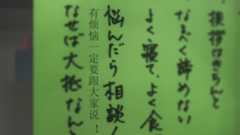 挨拶はきちんと
なるべく諦めない
よく寝て、よく食
悩んだら相談!
有烦恼一定要跟大家说!
なせば大抵なん